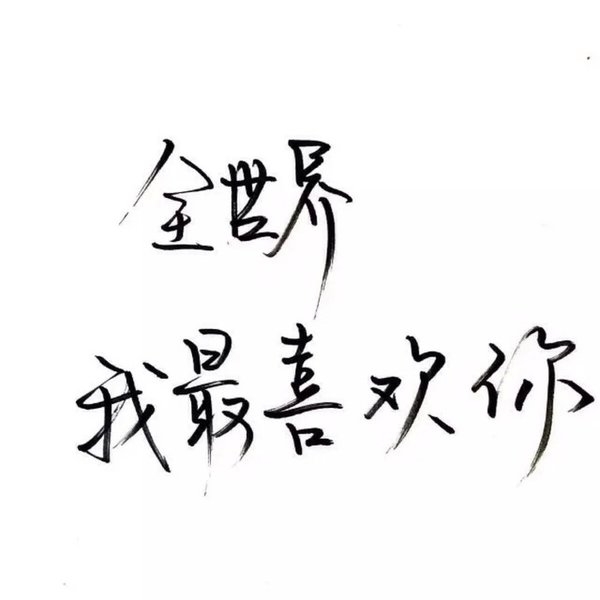 全世界
我最喜欢你